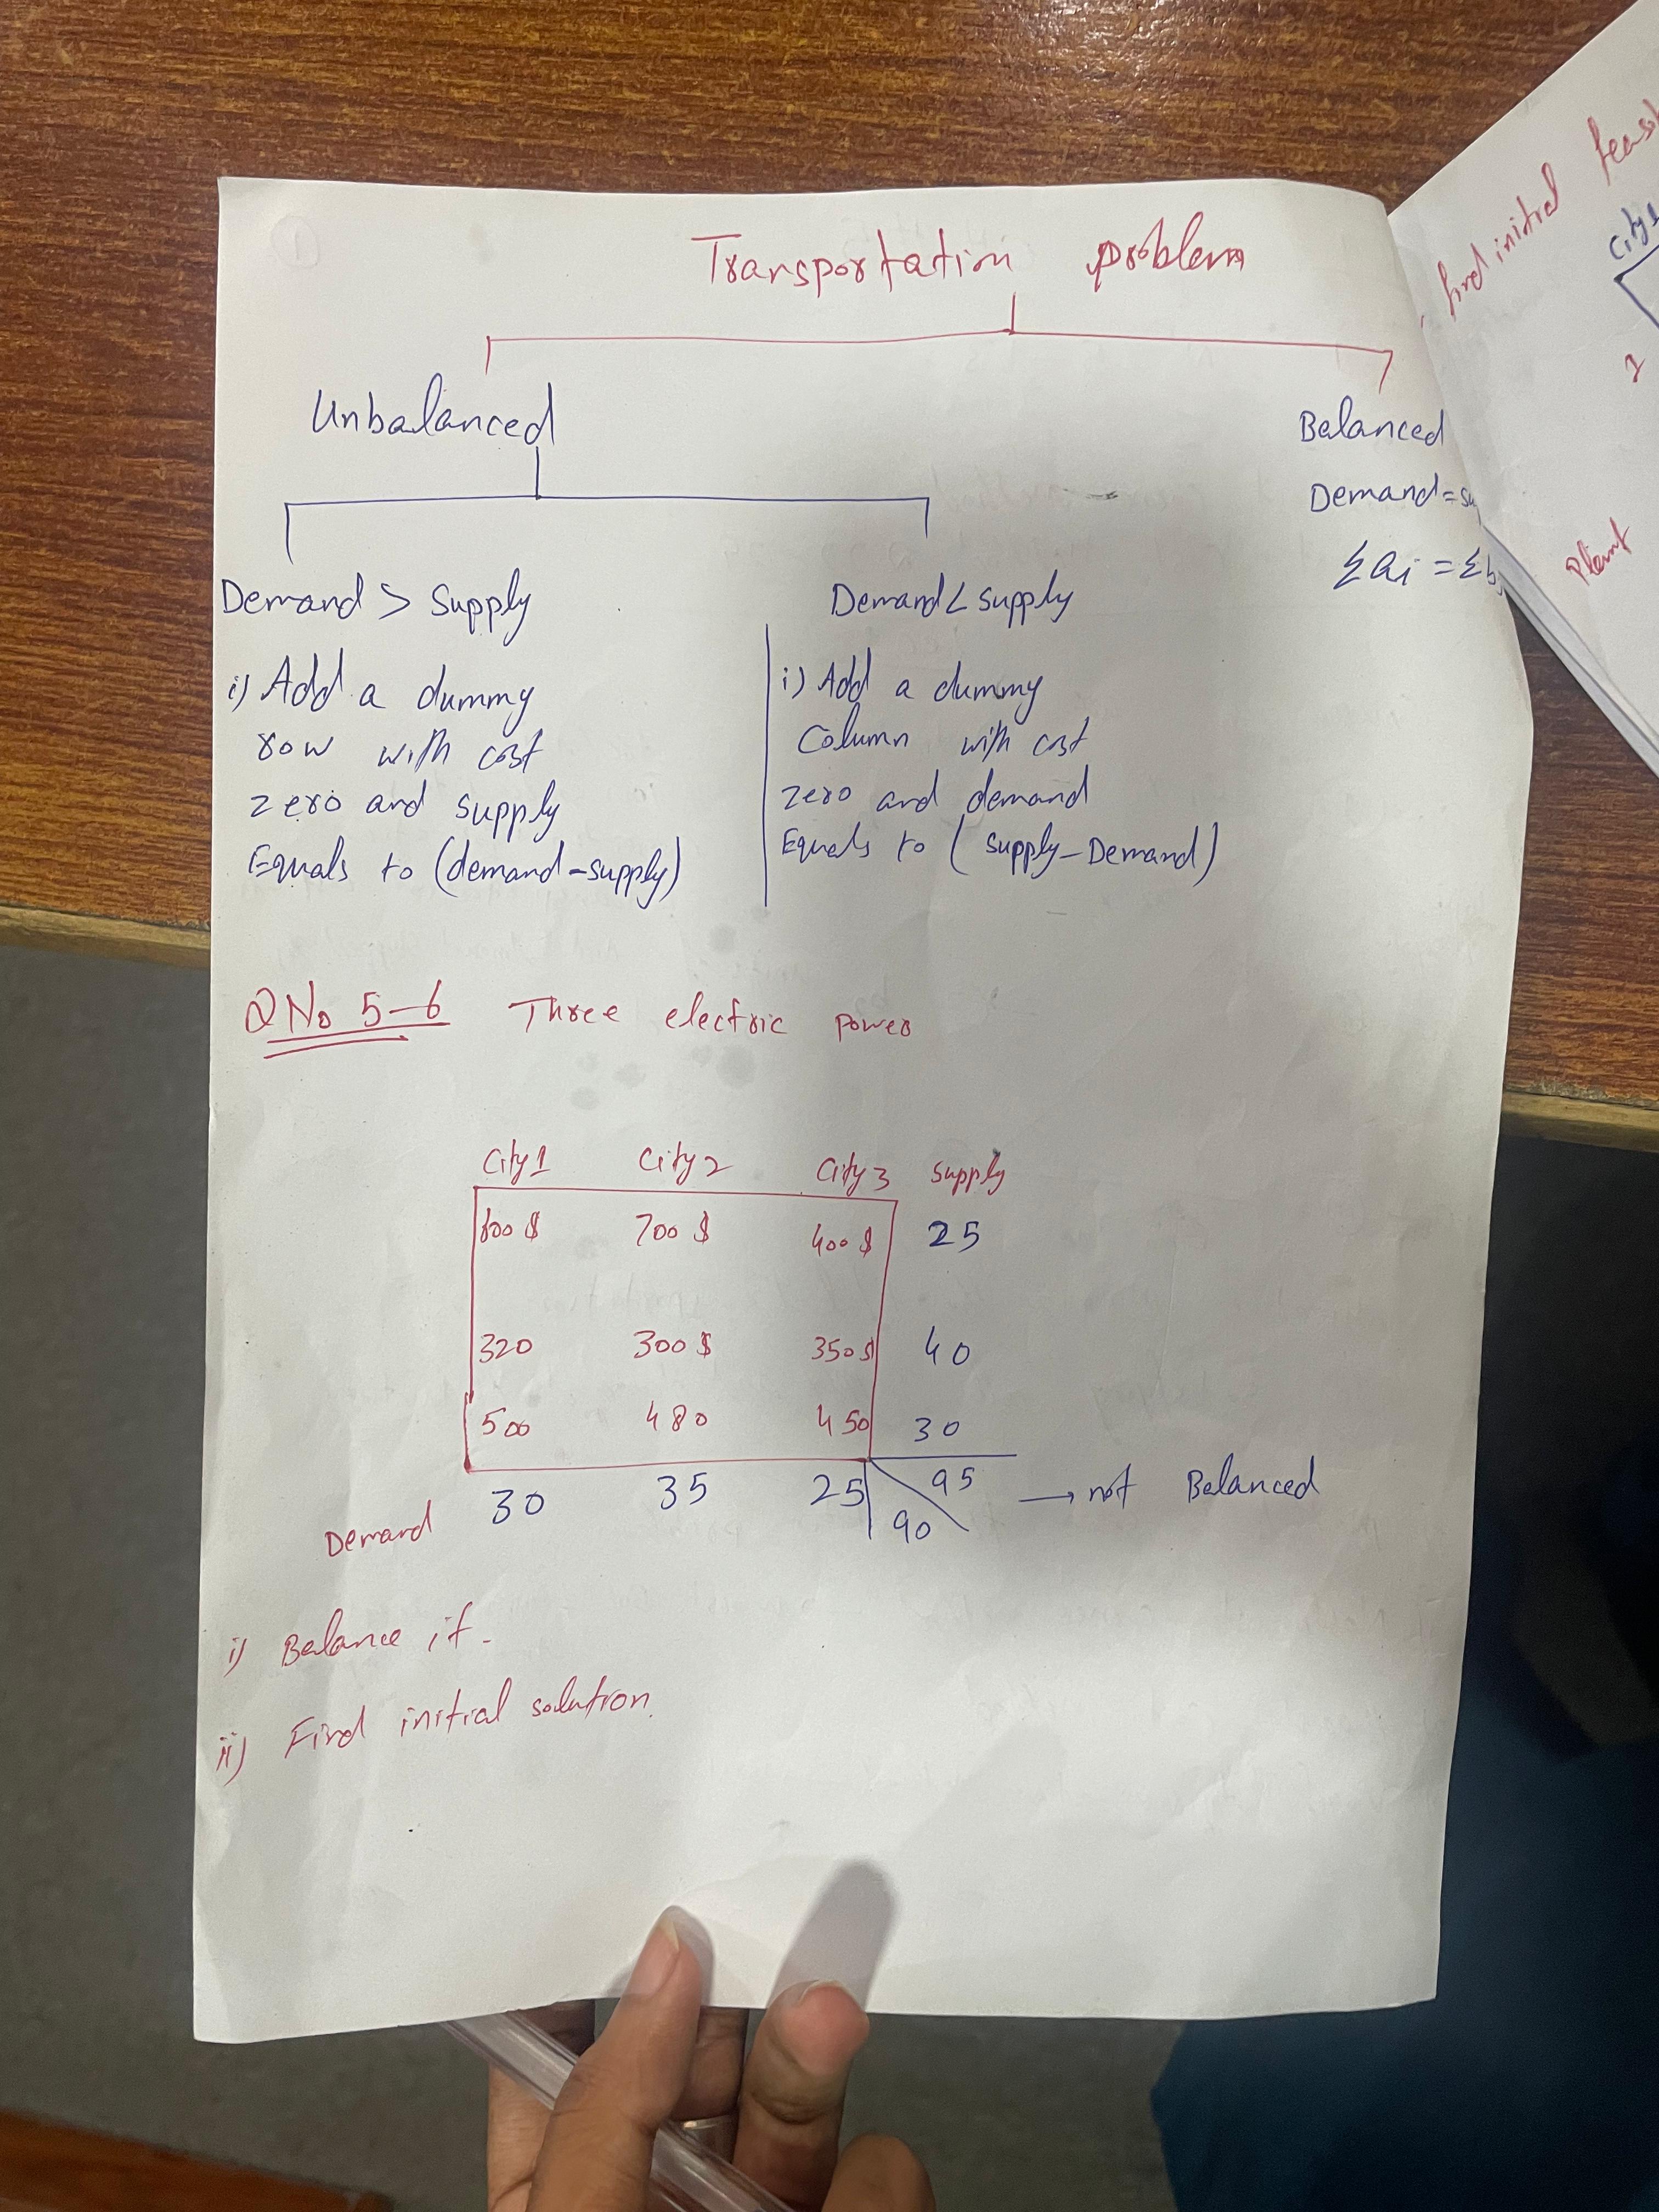 1
Transportation problem
Unbalanced
Balanced
Demand = su
Σai = Σb
Demand > Supply
i) Add a dummy
row with cost
zero and supply
Equals to (demand-supply)
Demand < supply
i) Add a dummy
Column with cost
zero and demand
Equals to (supply-Demand)
Q No 5-6 Three electric power
City 1 City 2 City 3 Supply
600 $ 700 $ 400 $ 25
320 300 $ 350 $ 40
500 480 450 30
Demand 30 35 25 95 → not Balanced
90
i) Balance it.
ii) Find initial solution.
find initial feas
City 1
1
Plant